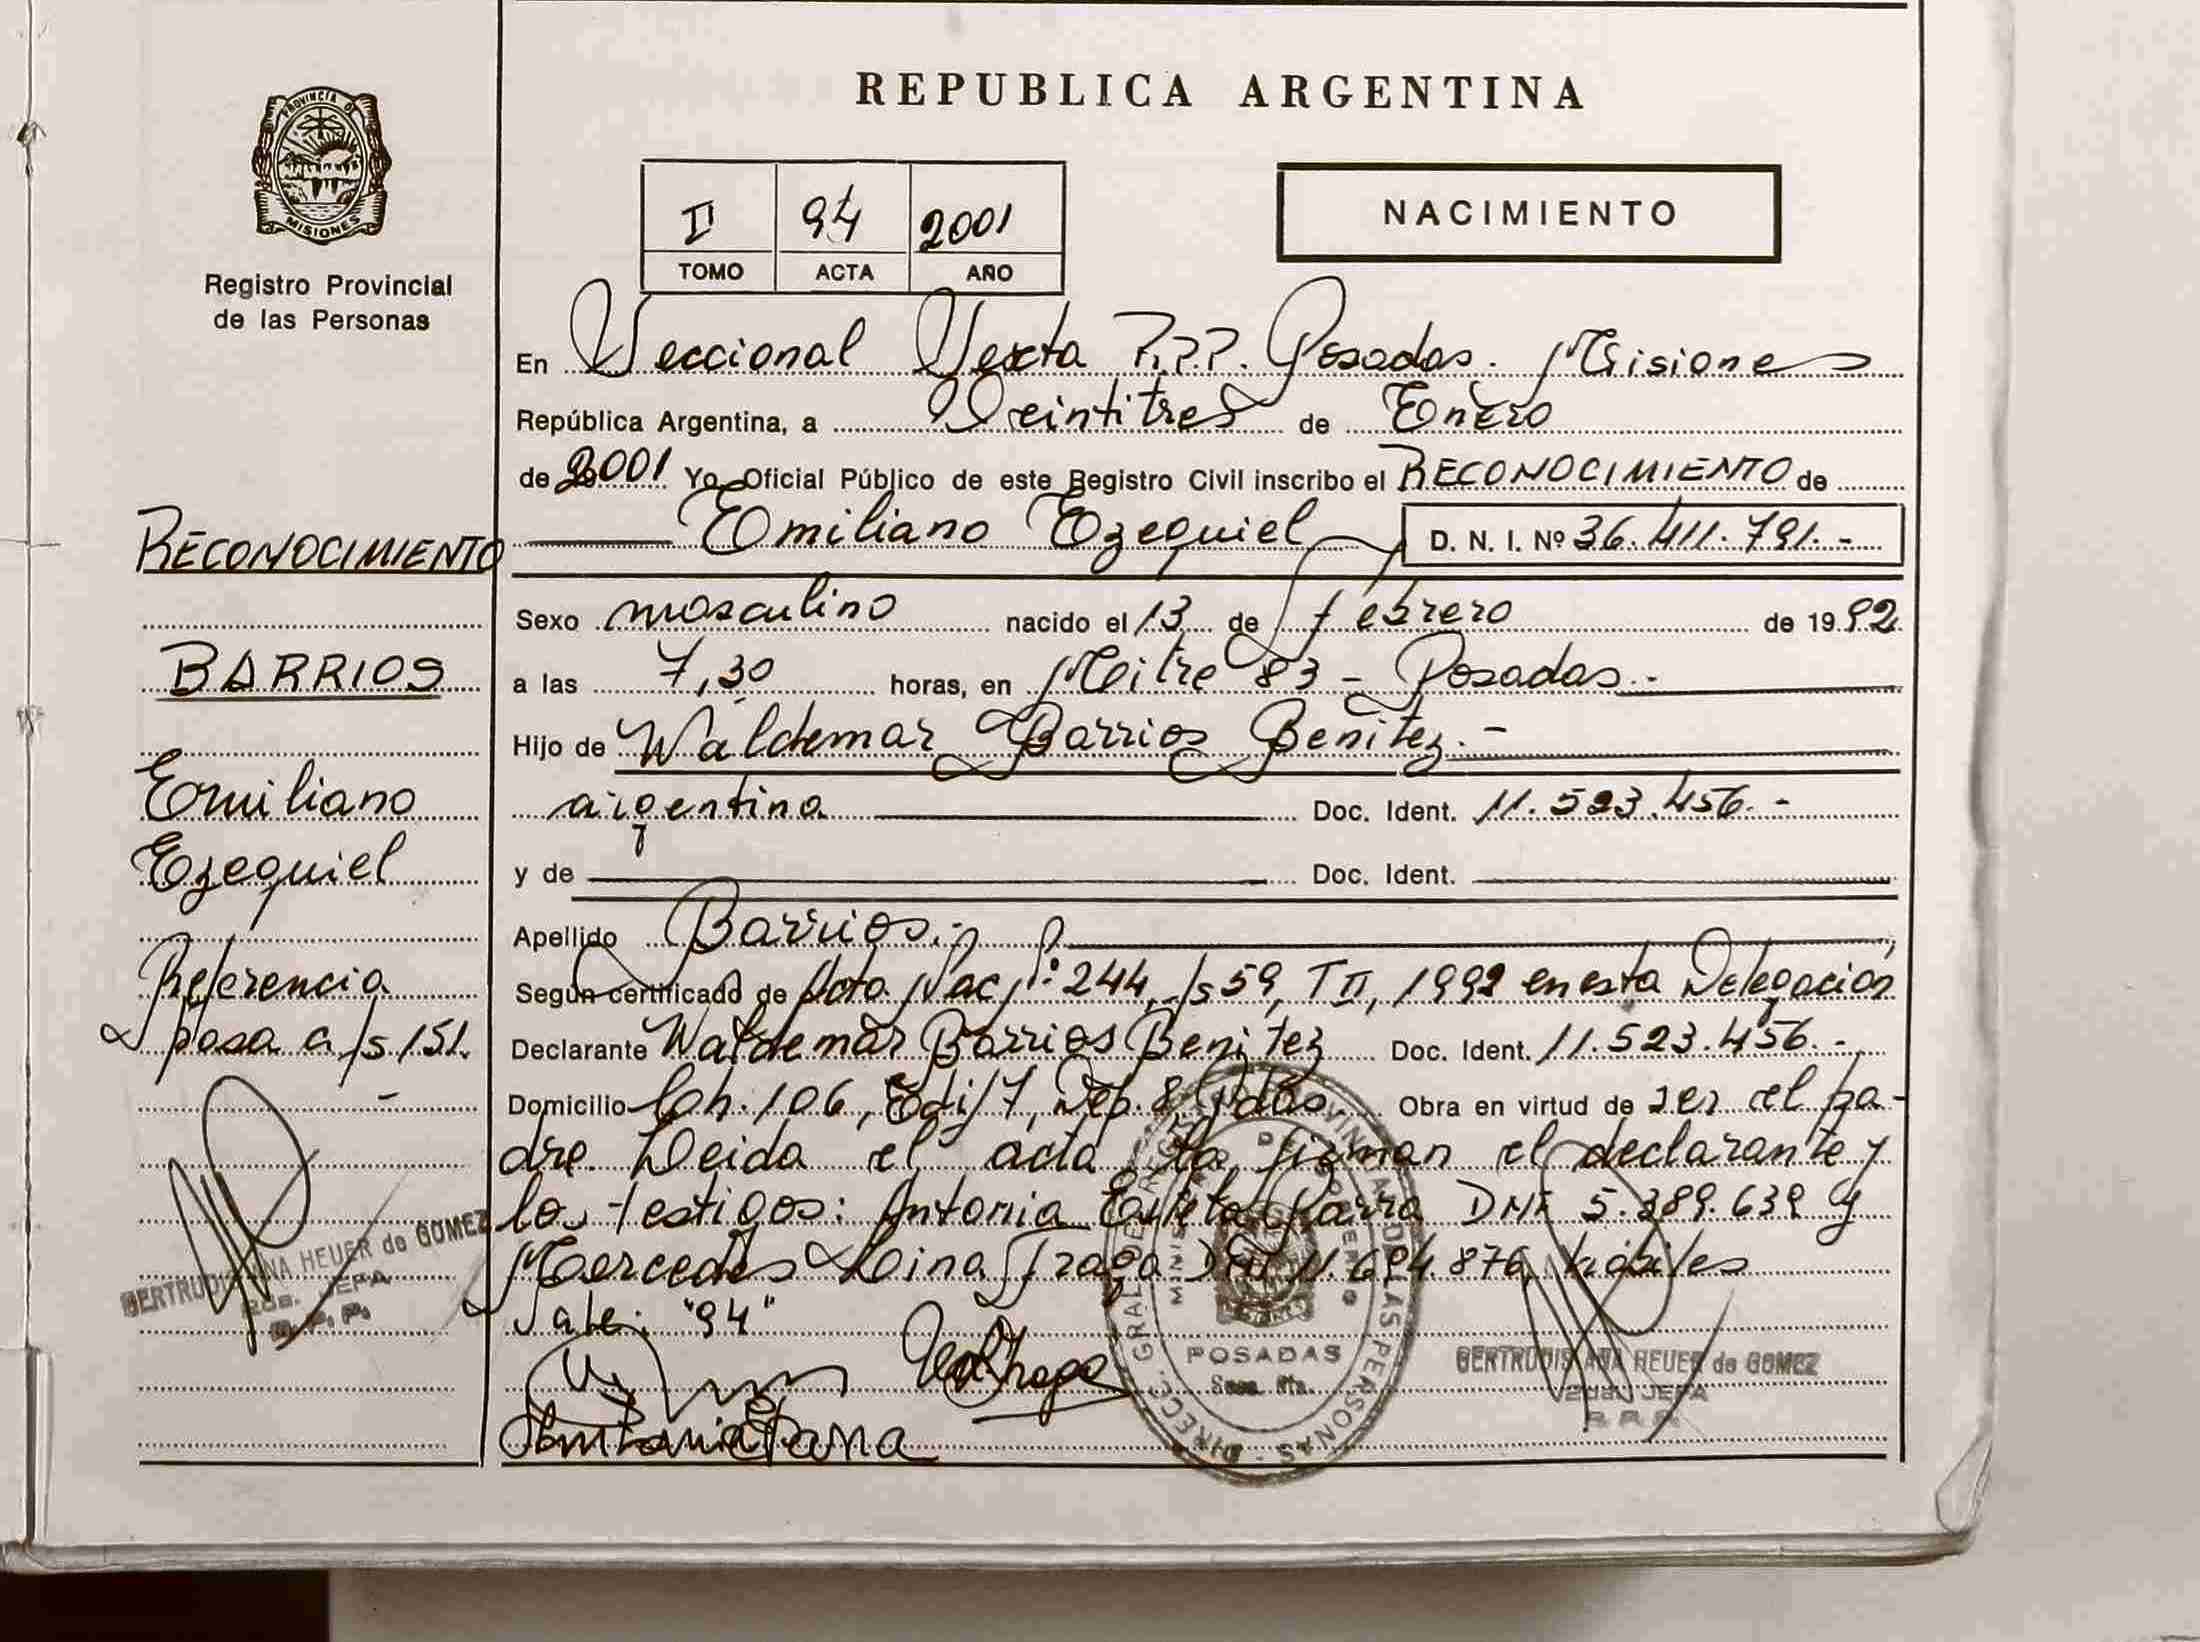 REPUBLICA ARGENTINA
PROVINCIA DE
MISIONES
Registro Provincial
de las Personas
II 94 2001
TOMO ACTA AÑO
NACIMIENTO
En Seccional Sexta R.P.P. Posadas. Misiones
República Argentina, a Veintitres de Enero
de 2001 Yo Oficial Público de este Registro Civil inscribo el RECONOCIMIENTO de
Emiliano Ezequiel D. N. I. Nº 36.411.791.-
Sexo masculino nacido el 13 de febrero de 1992
a las 7,30 horas, en Mitre 83 - Posadas.-
Hijo de Waldemar Barrios Benitez.-
argentina Doc. Ident. 11.523.456.-
y de Doc. Ident.
Apellido Barrios.-
Según certificado de Acta Nac Nº: 244, fs 59, T II, 1992 en esta Delegación
Declarante Waldemar Barrios Benitez Doc. Ident. 11.523.456.-
Domicilio Ch. 106, Edif 7, Dep. 8, Pdas. Obra en virtud de ser el pa-
dre. Leida el acta la firman el declarante y
los testigos: Antonia Parra DNI 5.389.639 y
Mercedes Lina Fraga DNI 11.694.876, hábiles
Vale: "94"
Antonia Parra
RECONOCIMIENTO
BARRIOS
Emiliano
Ezequiel
Referencia
pasa a fs 151.
-
GERTRUDIS ANA HEUER de GOMEZ
JEFA
R. P. P.
DIRECC. GRAL. DE PROVINCIAL DE LAS PERSONAS
POSADAS
GERTRUDIS ANA HEUER de GOMEZ
JEFA
R. P. P.